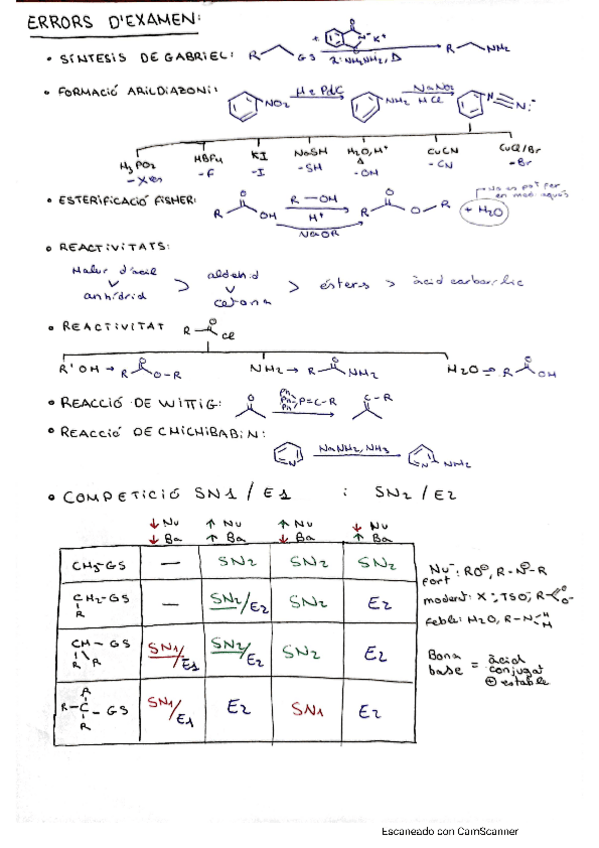 ERRORS D'EXAMEN:
• SÍNTESIS DE GABRIEL: R GS + N⁻ K⁺ R: NH₂NH₂, Δ R NH₂
• FORMACIÓ ARILDIAZONI: NO₂ H₂ Pd/C NH₂ NaNO₂ HCl N N:
H₃PO₂ HBF₄ KI NaSH H₂O, H⁺ CuCN CuCl/Br
-F -I -SH Δ -OH -CN -Br
• ESTERIFICACIÓ FISHER: R O OH R—OH H⁺ NaOR R O O—R + H₂O No es pot fer en medi aquós
• REACTIVITATS:
Halur d'àcil > anhídrid > aldehid > cetona > ésters > àcid carboxílic
• REACTIVITAT R O Cl
R'OH → R O O—R NH₃ → R O NH₂ H₂O → R O OH
• REACCIÓ DE WITTIG: O Ph Ph Ph P=C—R C—R
• REACCIÓ DE CHICHIBABIN:
N NaNH₂, NH₃ N NH₂
• COMPETICIÓ SN1 / E1 i SN2 / E2
↓ Nu ↑ Nu ↑ Nu ↓ Nu
↓ Ba ↑ Ba ↓ Ba ↑ Ba
CH₃-GS — SN2 SN2 SN2
CH₂-GS R — SN2/E2 SN2 E2
CH—GS R R SN1/E1 SN2/E2 SN2 E2
R R—C—GS R SN1/E1 E2 SN1 E2
Nu⁻ fort: RO⁻, R-N⁻-R
moderat: X⁻, TSO⁻, R O O⁻
feble: H₂O, R-N H H
Bona base = àcid conjugat ⊕ estable
Escaneado con CamScanner